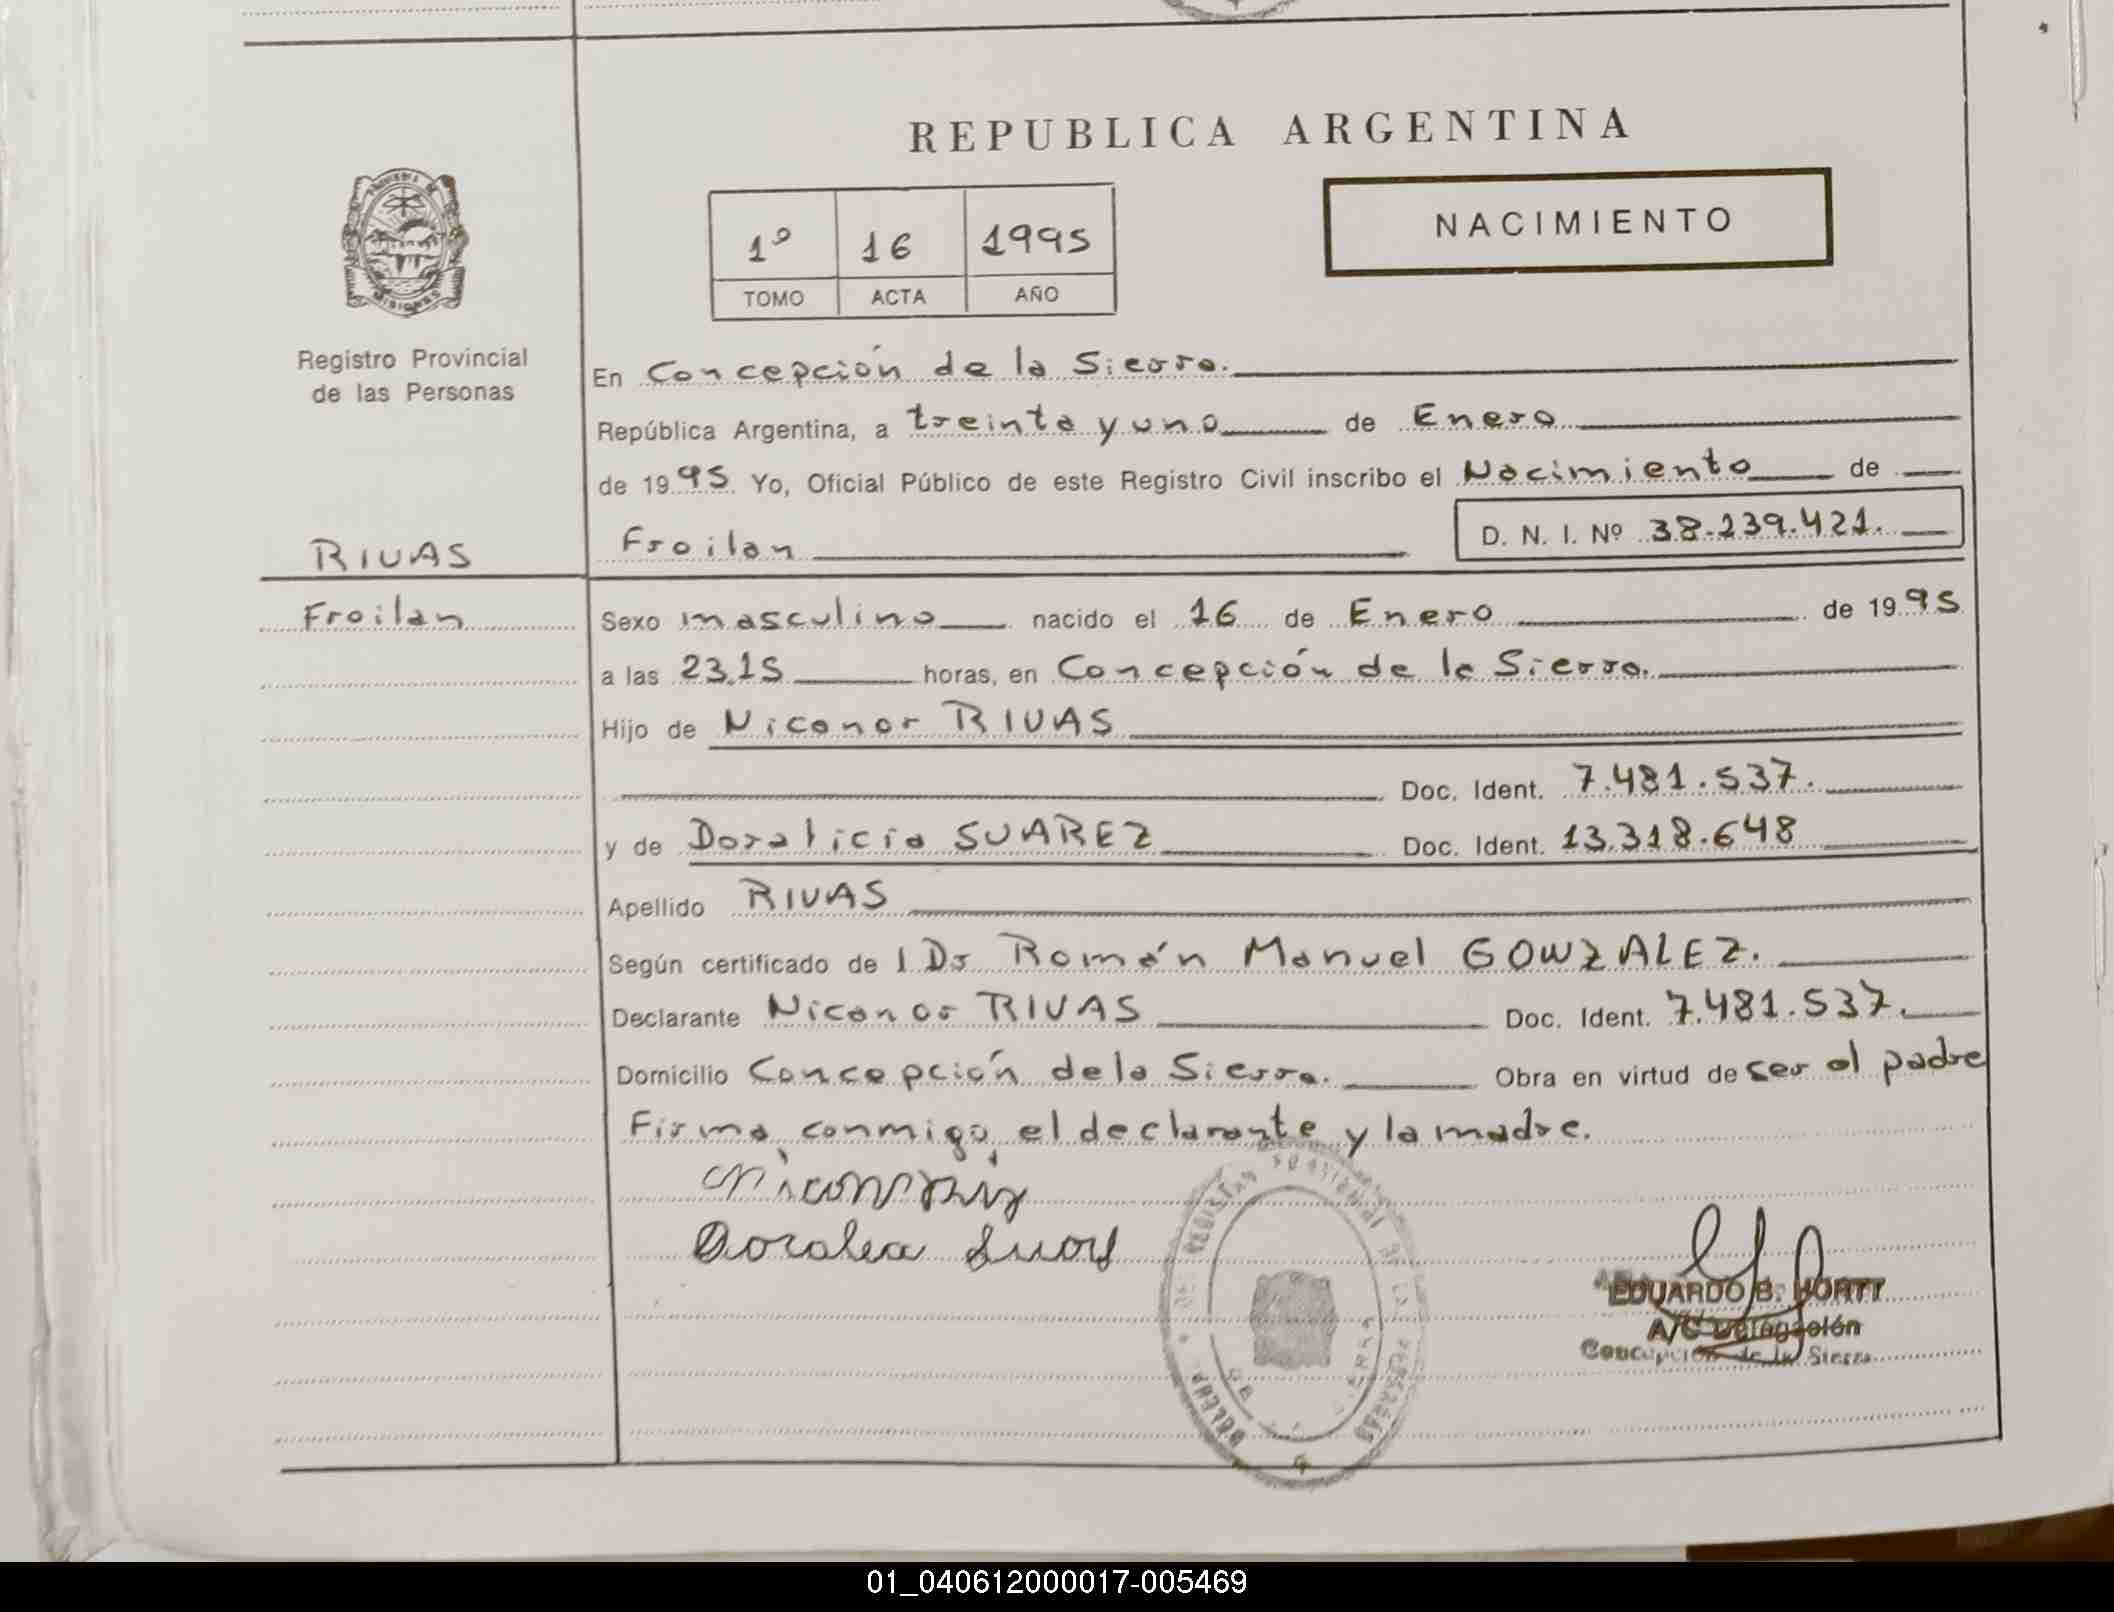 REPUBLICA ARGENTINA
1º 16 1995
TOMO ACTA AÑO
NACIMIENTO
PROVINCIA DE
MISIONES
Registro Provincial
de las Personas
RIVAS
Froilan
En Concepción de la Sierra.
República Argentina, a treinta y uno de Enero
de 1995 Yo, Oficial Público de este Registro Civil inscribo el Nacimiento de
Froilan D. N. I. Nº 38.239.421.
Sexo masculino nacido el 16 de Enero de 1995
a las 23,15 horas, en Concepción de la Sierra.
Hijo de Niconor RIVAS
Doc. Ident. 7.481.537.
y de Doralicia SUAREZ Doc. Ident. 13.318.648
Apellido RIVAS
Según certificado de l Dr Román Manuel GONZALEZ.
Declarante Niconor RIVAS Doc. Ident. 7.481.537.
Domicilio Concepción de la Sierra. Obra en virtud de ser el padre
Firma conmigo, el declarante y la madre.
EDUARDO B.
A/C Delegación
Concepción de la Sierra
01_040612000017-005469